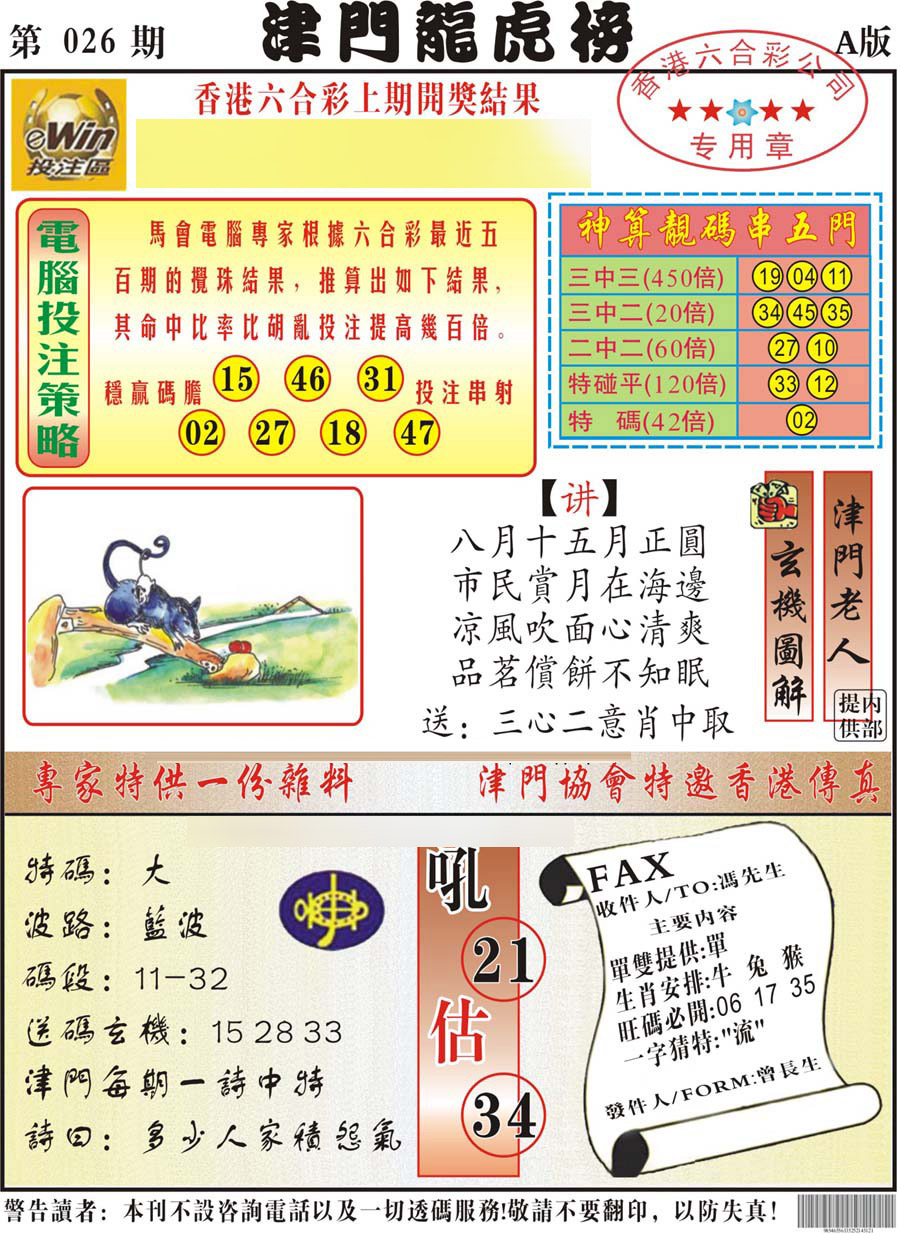 第 026 期
津門龍虎榜
A版
香港六合彩公司
★★★★
专用章
eWin
投注區
香港六合彩上期開獎結果
電腦投注策略
馬會電腦專家根據六合彩最近五
百期的攪珠結果，推算出如下結果，
其命中比率比胡亂投注提高幾百倍。
穩贏碼膽 15 46 31 投注串射
02 27 18 47
神算靚碼串五門
三中三(450倍) 19 04 11
三中二(20倍) 34 45 35
二中二(60倍) 27 10
特碰平(120倍) 33 12
特 碼(42倍) 02
【讲】
八月十五月正圓
市民賞月在海邊
凉風吹面心清爽
品茗償餅不知眠
送：三心二意肖中取
玄機圖解
津門老人
提供
内部
專家特供一份雜料
津門協會特邀香港傳真
特碼：大
波路：藍波
碼段：11-32
送碼玄機：15 28 33
津門每期一詩中特
詩曰：多少人家積怨氣
吼
21
估
34
FAX
收件人/TO:馮先生
主要内容
單雙提供:單
生肖安排:牛 兔 猴
旺碼必開:06 17 35
一字猜特:"流"
發件人/FORM:曾長生
警告讀者：本刊不設咨詢電話以及一切透碼服務!敬請不要翻印，以防失真!